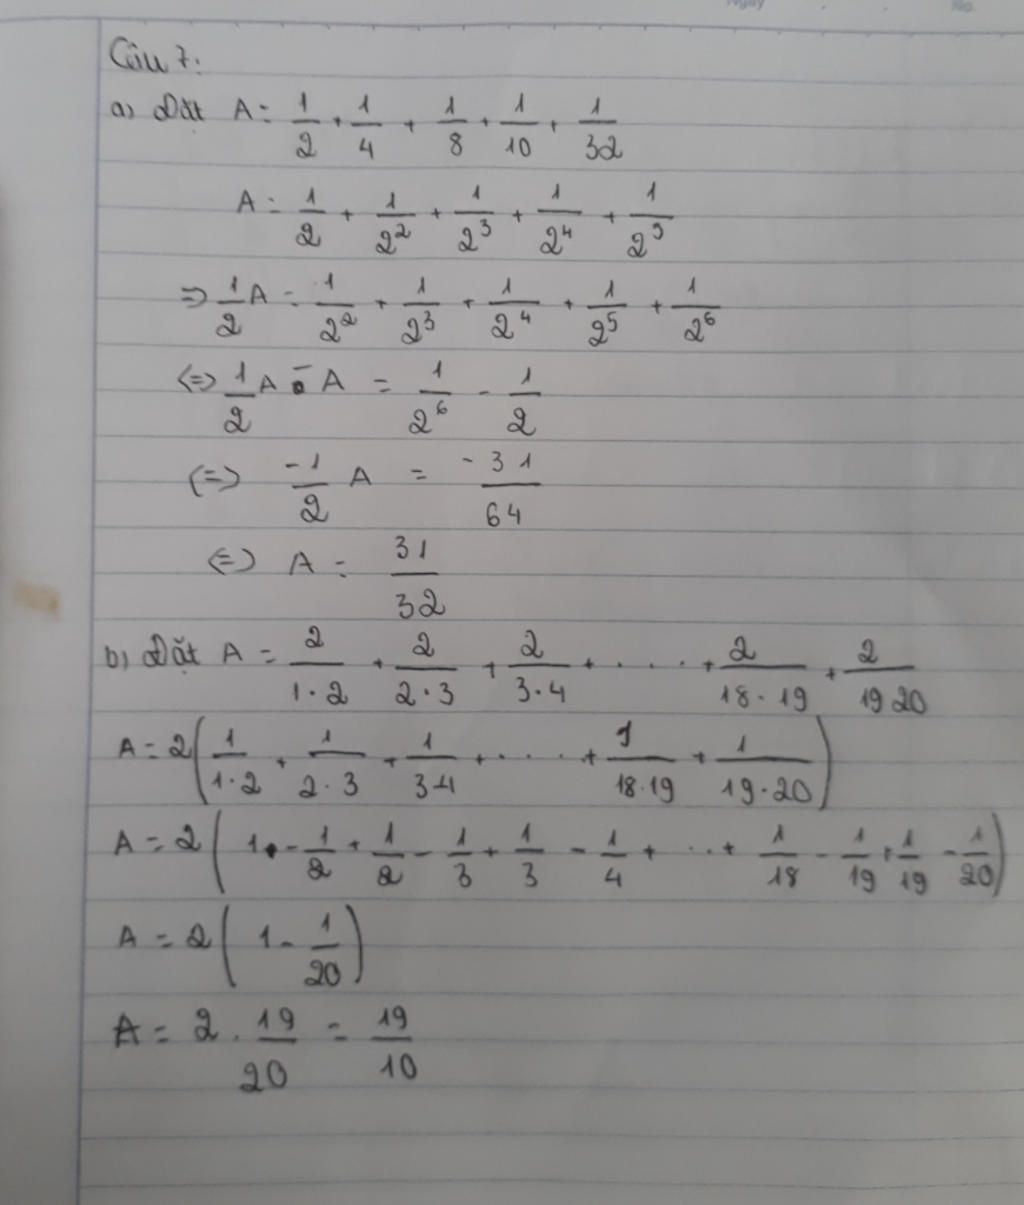 Ngày No.
Câu 7:
a) Đặt A = 1/2 + 1/4 + 1/8 + 1/10 + 1/32
A = 1/2 + 1/2² + 1/2³ + 1/2⁴ + 1/2⁵
=> 1/2 A = 1/2² + 1/2³ + 1/2⁴ + 1/2⁵ + 1/2⁶
<=> 1/2 A - A = 1/2⁶ - 1/2
<=> -1/2 A = -31/64
<=> A = 31/32
b) Đặt A = 2/1·2 + 2/2·3 + 2/3·4 + .... + 2/18·19 + 2/19 20
A = 2(1/1·2 + 1/2·3 + 1/3·4 + .... + 1/18·19 + 1/19·20)
A = 2(1 - 1/2 + 1/2 - 1/3 + 1/3 - 1/4 + ... + 1/18 - 1/19 + 1/19 - 1/20)
A = 2(1 - 1/20)
A = 2 . 19/20 = 19/10